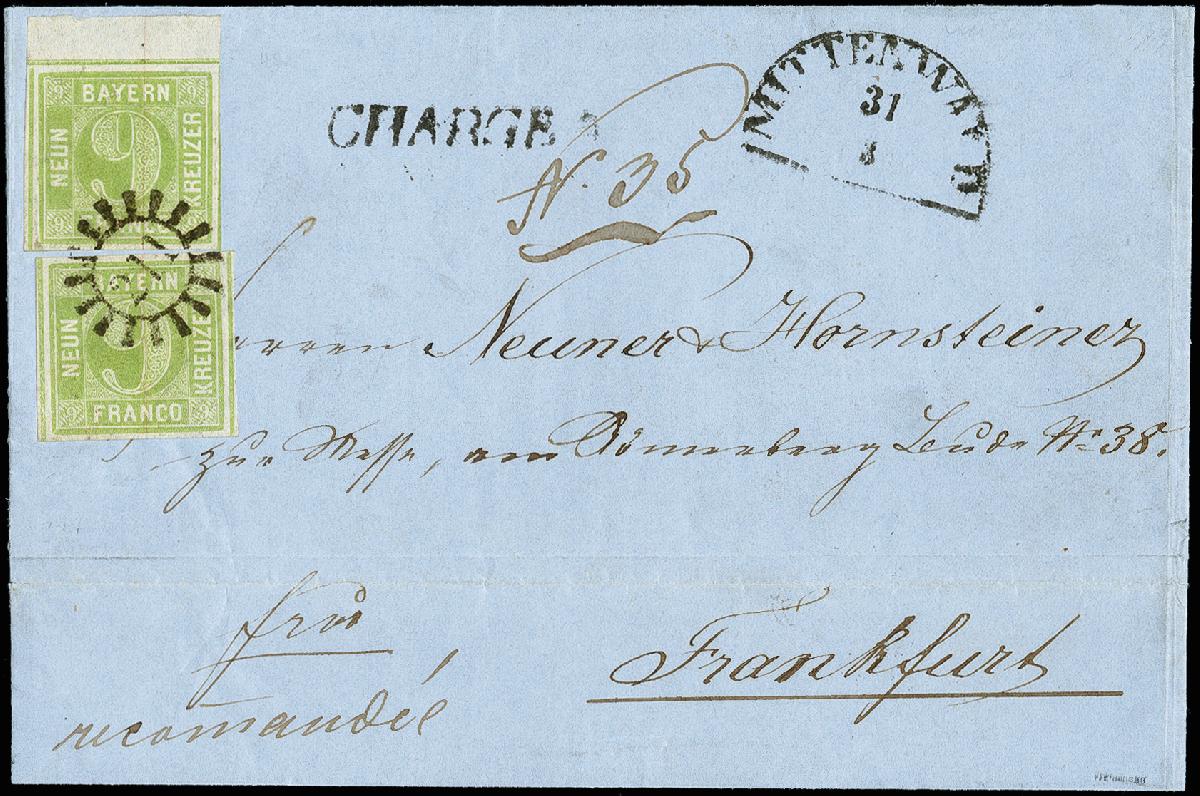 9 9
BAYERN
NEUN 9 KREUZER
FRANCO
9 9
BAYERN
NEUN 9 KREUZER
FRANCO
9 9
CHARGE
MITTENWALD
31
N. 35
Herren Neuner & Hornsteiner
zur Messe, am Römerberg Bude No 38.
frco
recomandée
Frankfurt